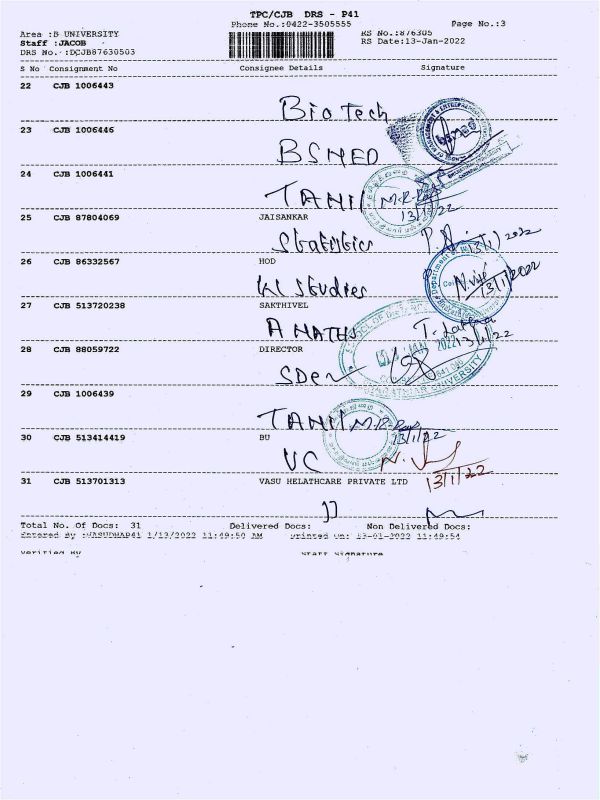 TPC/CJB DRS - P41
Phone No.:0422-3505555 Page No.:3
Area :B UNIVERSITY RS No.:876305
Staff :JACOB RS Date:13-Jan-2022
DRS No. :DCJB87630503
S No Consignment No Consignee Details Signature
22 CJB 1006443
Bio Tech
23 CJB 1006446
BSMED
24 CJB 1006441
TAMIL
13/1/22
25 CJB 87804069 JAISANKAR
Statistics 13/1/2022
26 CJB 86332567 HOD
Studies 13/1/2022
27 CJB 513720238 SAKTHIVEL
A MATHS 13/1/22
28 CJB 88059722 DIRECTOR
SDE
29 CJB 1006439
TAMIL
13/1/22
30 CJB 513414419 BU
VC
13/1/22
31 CJB 513701313 VASU HELATHCARE PRIVATE LTD
Total No. Of Docs: 31 Delivered Docs: Non Delivered Docs:
Entered By :VASUDHAP41 1/13/2022 11:49:50 AM Printed On: 13-01-2022 11:49:54
Verified By Staff Signature